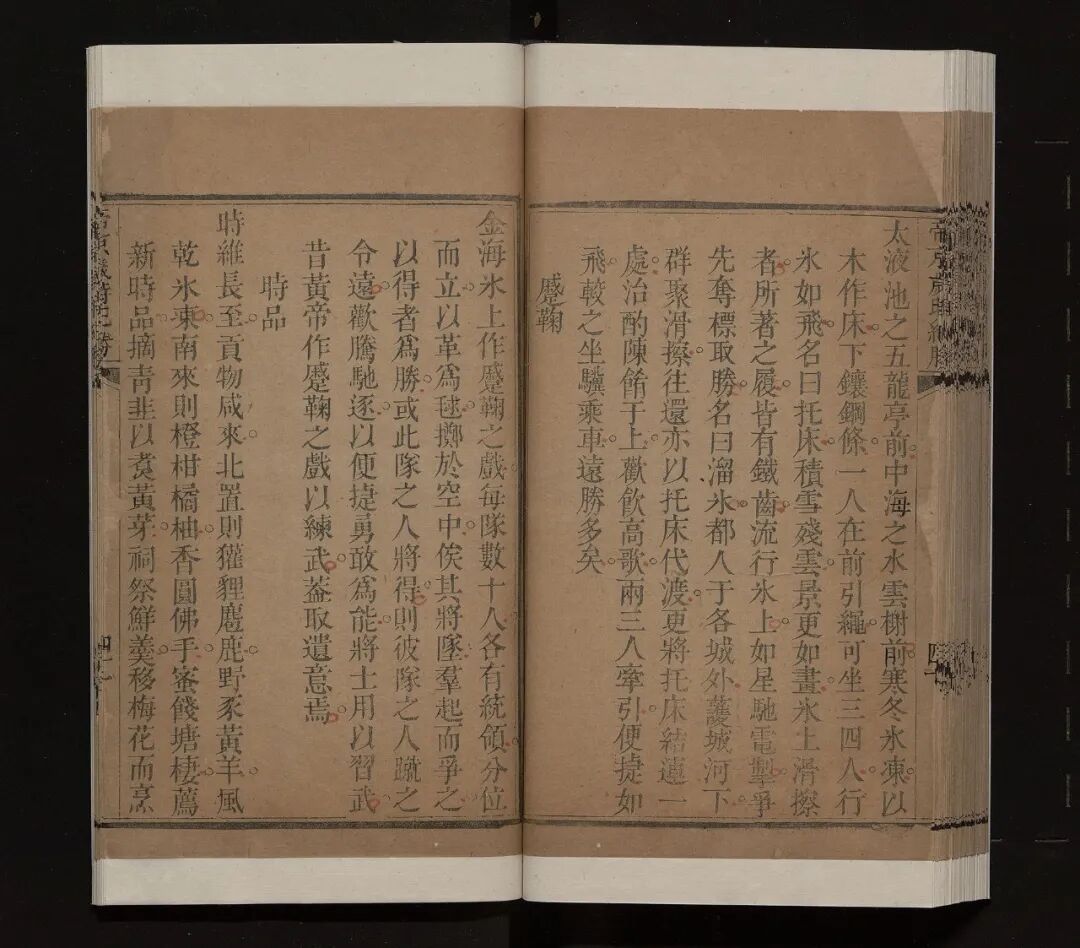 帝京歲時紀勝
太液池之五龍亭前中海之水雲榭前寒冬氷凍以
木作床下鑲鋼條一人在前引繩可坐三四人行
氷如飛名曰拖床積雪殘雲景更如畫氷上滑擦
者所著之履皆有鐵齒流行氷上如星馳電掣爭
先奪標取勝名曰溜氷都人于各城外䕶城河下
群聚滑擦往還亦以拖床代渡更將拖床結連一
處治酌陳餚于上歡飲高歌兩三人牽引便捷如
飛較之坐驥乘車遠勝多矣
蹙鞠
金海氷上作蹙鞠之戲每隊數十人各有統領分位
而立以革爲毬擲於空中俟其將墜羣起而爭之
以得者爲勝或此隊之人將得則彼隊之人蹴之
令遠歡騰馳逐以便捷勇敢爲能將士用以習武
昔黃帝作蹙鞠之戲以練武葢取遺意焉
時品
時維長至貢物咸來北置則獾狸麅鹿野豕黃羊風
乾氷凍南來則橙柑橘柚香圓佛手蜜餞塘棲薦
新時品摘青韭以煑黃芽祠祭鮮羹移梅花而烹